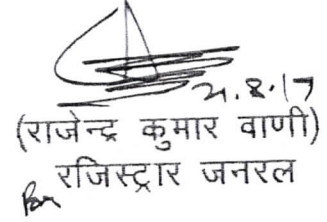 21.8.17
(राजेन्द्र कुमार वाणी)
रजिस्ट्रार जनरल